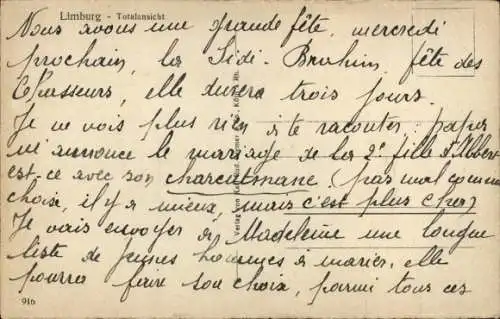 Limburg - Totalansicht
Nous avons une grande fête, mercredi
prochain, la Sidi-Brahim, fête des
Chasseurs, elle durera trois jours.
Je ne vois plus rien à te raconter, papa
m'annonce le mariage de la 2e fille d'Albert
est-ce avec son (pas mal comme
choix, il y a mieux, mais c'est plus cher)
Je vais envoyer à Madeleine une longue
liste de jeunes hommes à marier, elle
pourra faire son choix, parmi tous ces
916